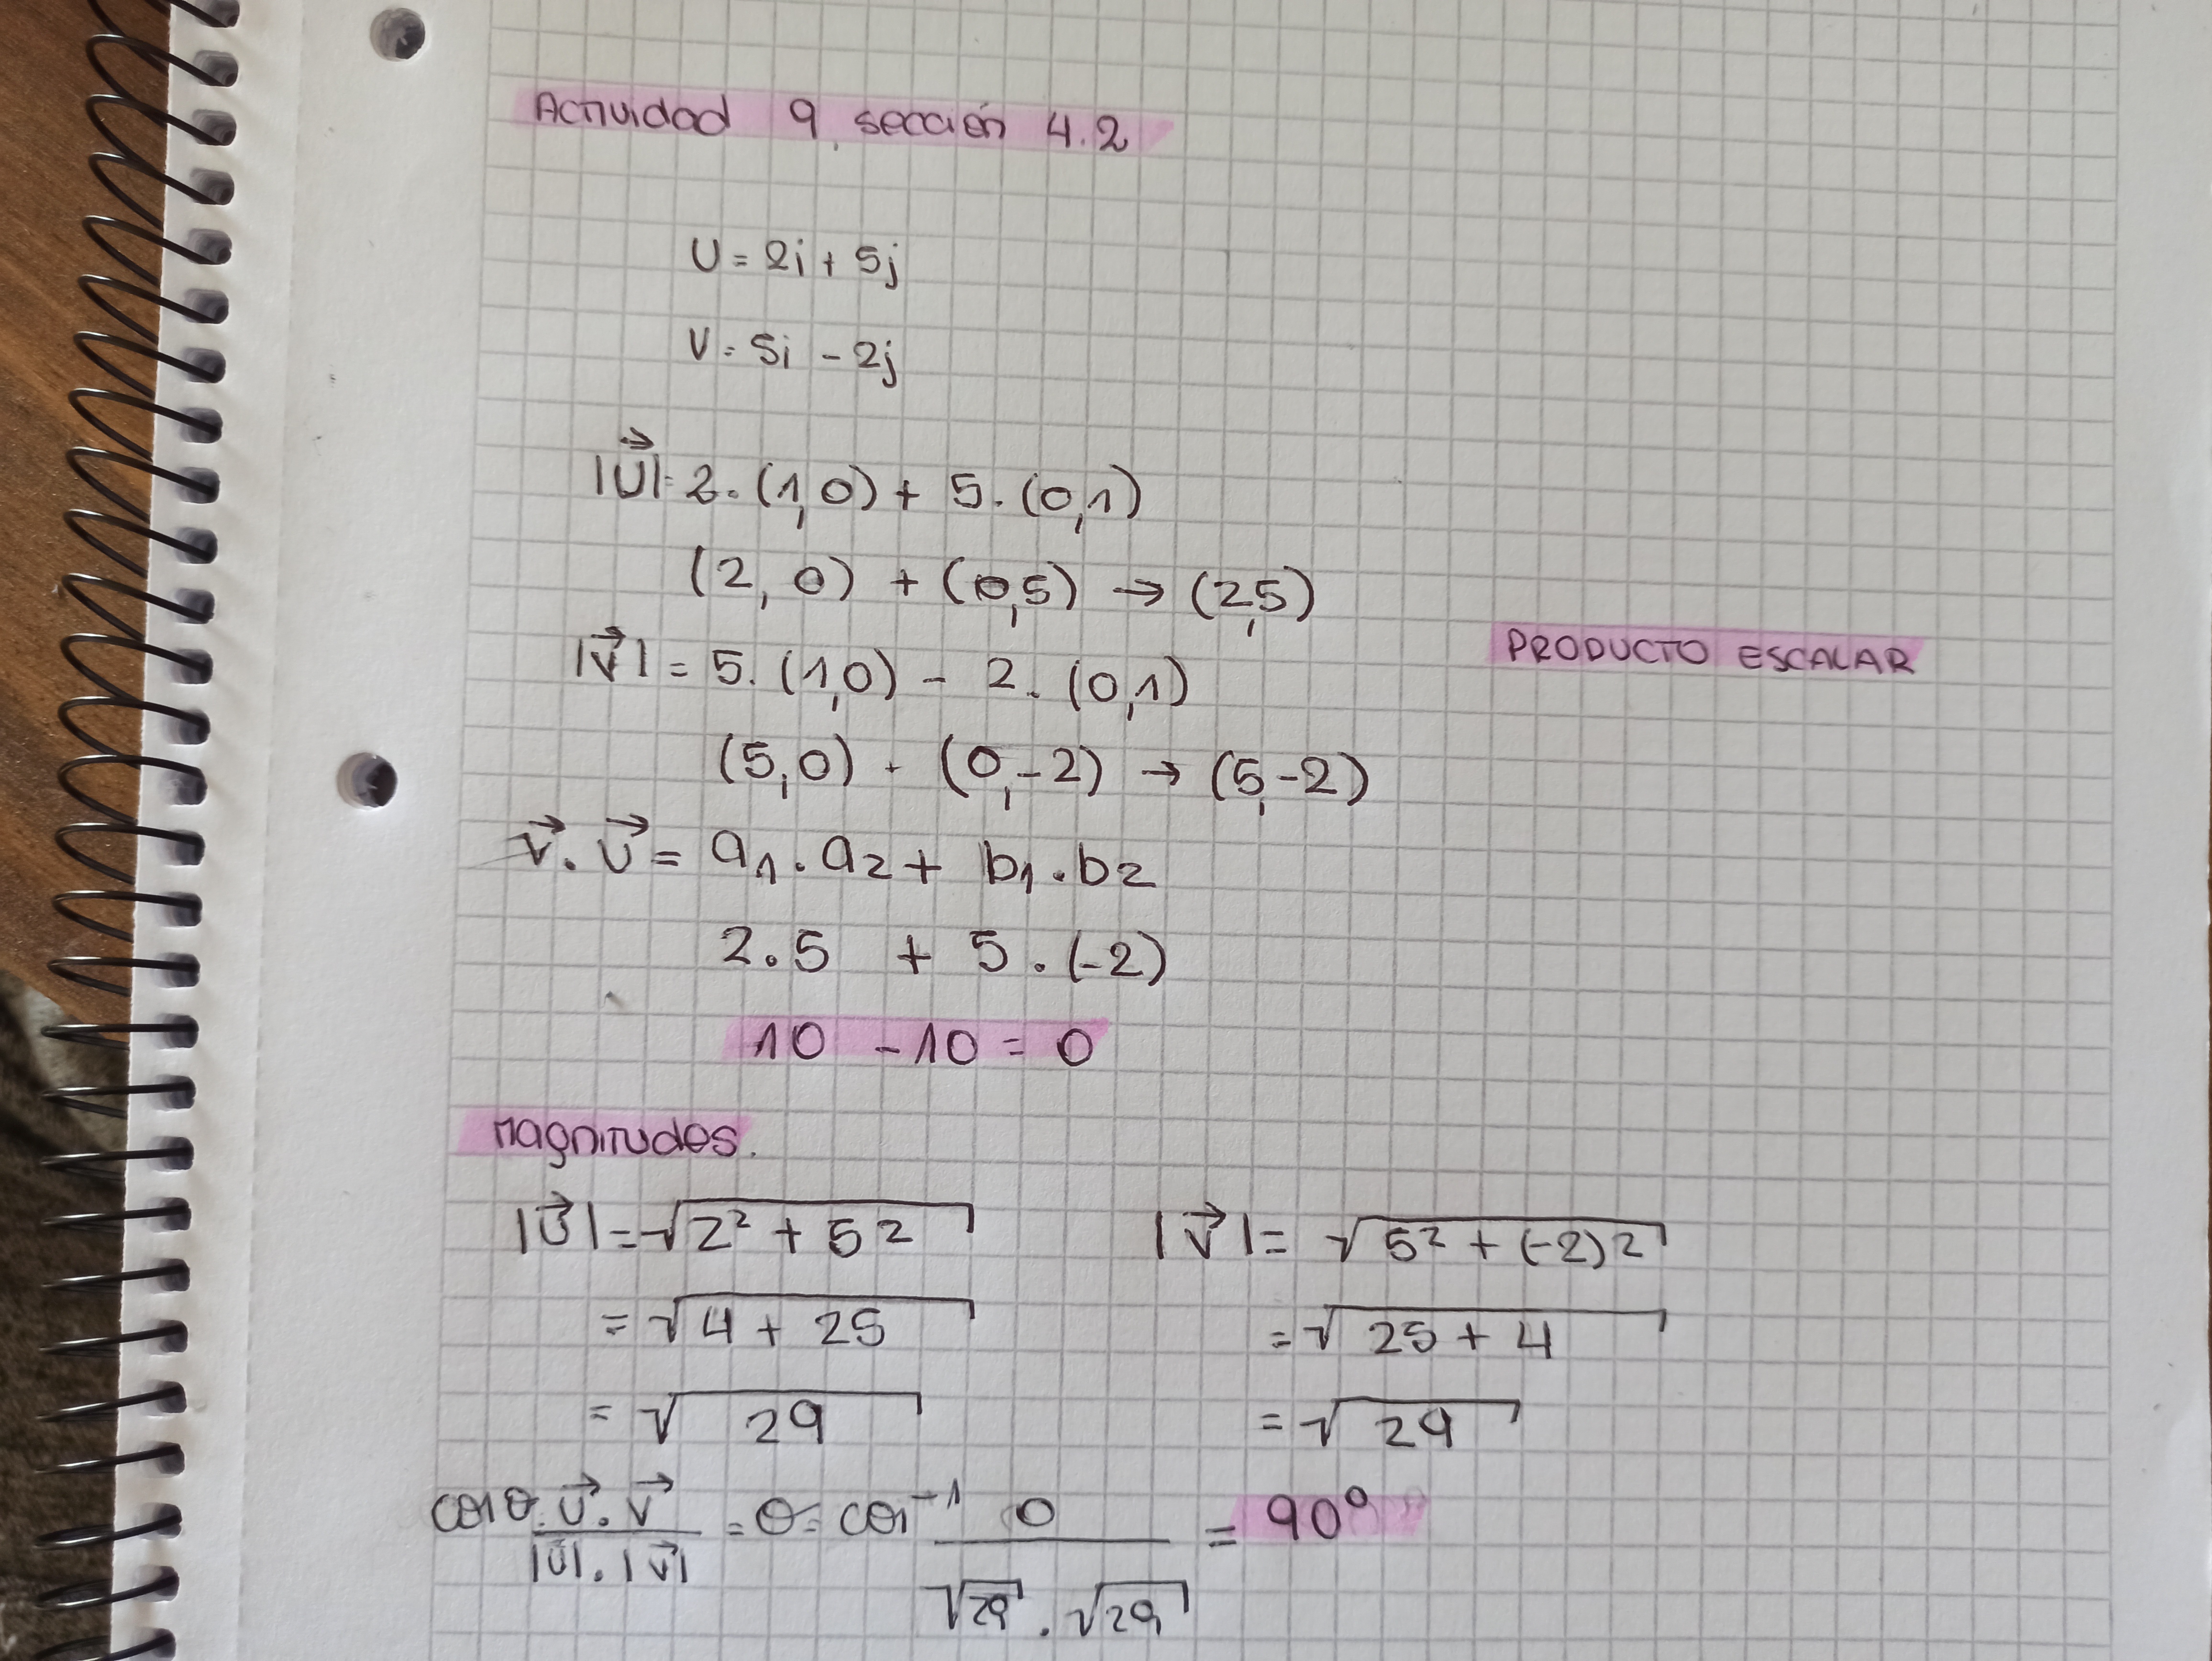 Actividad 9, sección 4.2
U = 2i + 5j
V = 5i - 2j
|U⃗| = 2.(1,0) + 5.(0,1)
(2,0) + (0,5) → (2,5)
|V⃗| = 5.(1,0) - 2.(0,1)
PRODUCTO ESCALAR
(5,0) - (0,-2) → (5,-2)
V⃗.U⃗ = a₁.a₂ + b₁.b₂
2.5 + 5.(-2)
10 - 10 = 0
Magnitudes.
|U⃗| = √(2² + 5²) |V⃗| = √(5² + (-2)²)
= √(4 + 25) = √(25 + 4)
= √29 = √29
cos θ = U⃗.V⃗ / |U⃗|.|V⃗| = θ = cos⁻¹ 0 / √29.√29 = 90°